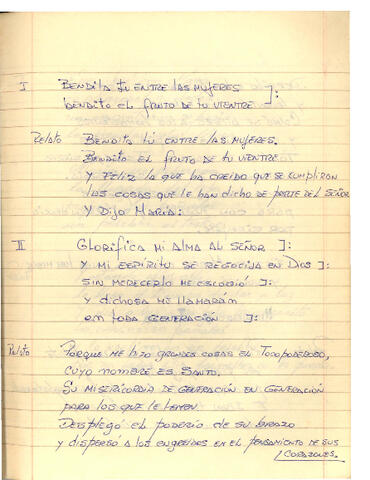 I Bendita tú entre las mujeres
bendito el fruto de tu vientre ]:
Relato Bendita tú entre las mujeres.
Bendito el fruto de tu vientre
y Feliz la que ha creido que se cumpliran
las cosas que le han dicho de parte del Señor
y Dijo Maria:
II Glorifica mi alma al Señor ]:
y mi espíritu se regocija en Dios ]:
sin merecerlo me escogió ]:
y dichosa me llamarán
en toda generación ]:
Relato Porque me hizo grandes cosas el Todopoderoso,
cuyo nombre es Santo.
Su misericordia de generación en generación
para los que le temen.
Desplegó el poderio de su brazo
y dispersó a los engreidos en el pensamiento de sus
/ corazones.